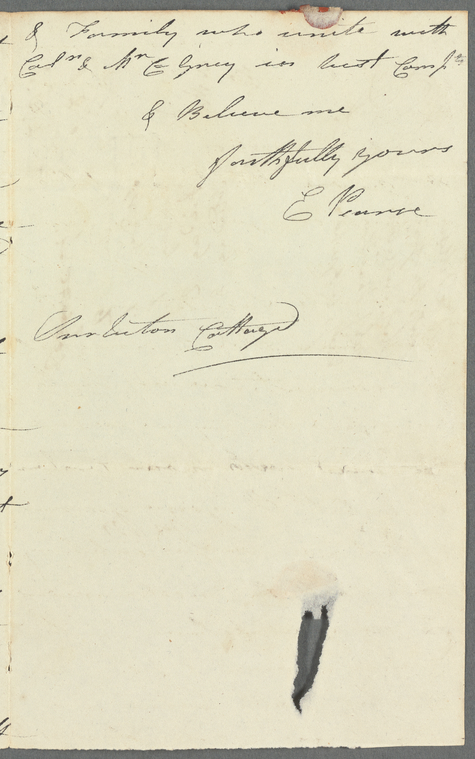 & Family who unite with
Col.ⁿ & Mʳ E Grey in best Comp.ts
& Believe me
faithfully yours
E Pearse
Cottage